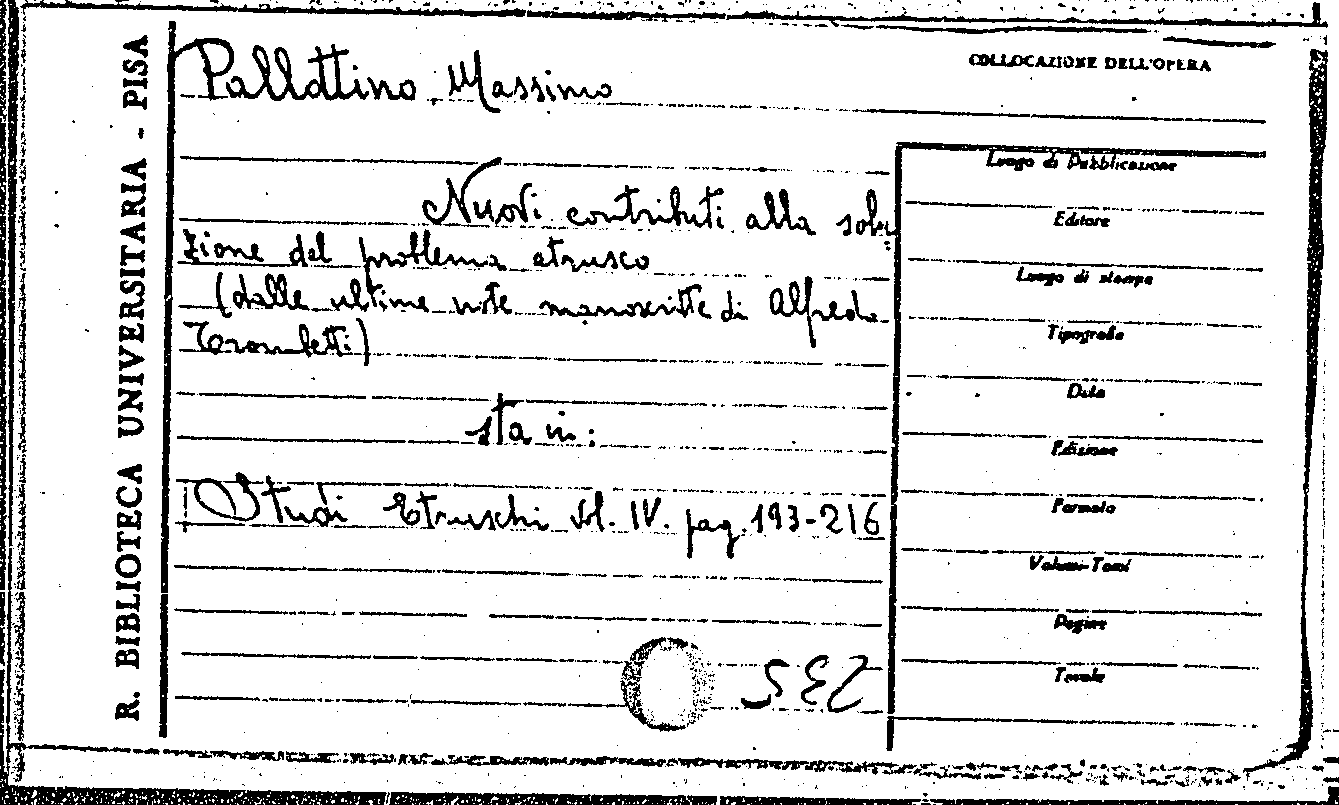 R. BIBLIOTECA UNIVERSITARIA - PISA
COLLOCAZIONE DELL'OPERA
Pallottino Massimo
Nuovi contributi alla solu
zione del problema etrusco
(dalle ultime note manoscritte di Alfredo
Trombetti)
sta in:
Studi Etruschi Vol. IV. pag. 193-216
Luogo di Pubblicazione
Editore
Luogo di stampa
Tipografia
Data
Edizione
Formato
Volumi-Tomi
Pagine
Tavole